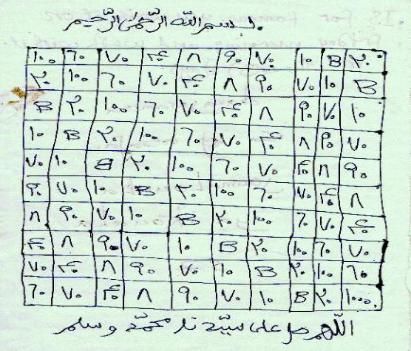 بسم الله الرحمن الرحيم
١٠٠ ٦٠ ٧٠ ۴٠ ٨ ٩٠ ٧٠ ١٠ ٥ ٢٠
٢٠ ١٠٠ ٦٠ ٧٠ ۴٠ ٨ ٩٠ ٧٠ ١٠ ٥
٥ ٢٠ ١٠٠ ٦٠ ٧٠ ۴٠ ٨ ٩٠ ٧٠ ١٠
١٠ ٥ ٢٠ ١٠٠ ٦٠ ٧٠ ۴٠ ٨ ٩٠ ٧٠
٧٠ ١٠ ٥ ٢٠ ١٠٠ ٦٠ ٧٠ ۴٠ ٨ ٩٠
٩٠ ٧٠ ١٠ ٥ ٢٠ ١٠٠ ٦٠ ٧٠ ۴٠ ٨
٨ ٩٠ ٧٠ ١٠ ٥ ٢٠ ١٠٠ ٦٠ ٧٠ ۴٠
۴٠ ٨ ٩٠ ٧٠ ١٠ ٥ ٢٠ ١٠٠ ٦٠ ٧٠
٧٠ ۴٠ ٨ ٩٠ ٧٠ ١٠ ٥ ٢٠ ١٠٠ ٦٠
٦٠ ٧٠ ۴٠ ٨ ٩٠ ٧٠ ١٠ ٥ ٢٠ ١٠٠
اللهم صل على سيدنا محمد وسلم